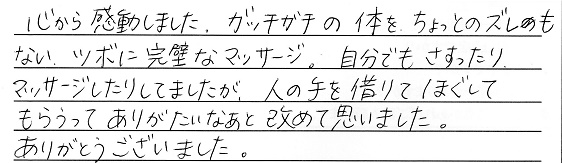 心から感動しました。ガッチガチの体を、ちょっとのズレもも
ない、ツボに完璧なマッサージ。自分でもさすったり、
マッサージしたりしてましたが、人の手を借りてほぐして
もらうってありがたいなあと改めて思いました。
ありがとうございました。